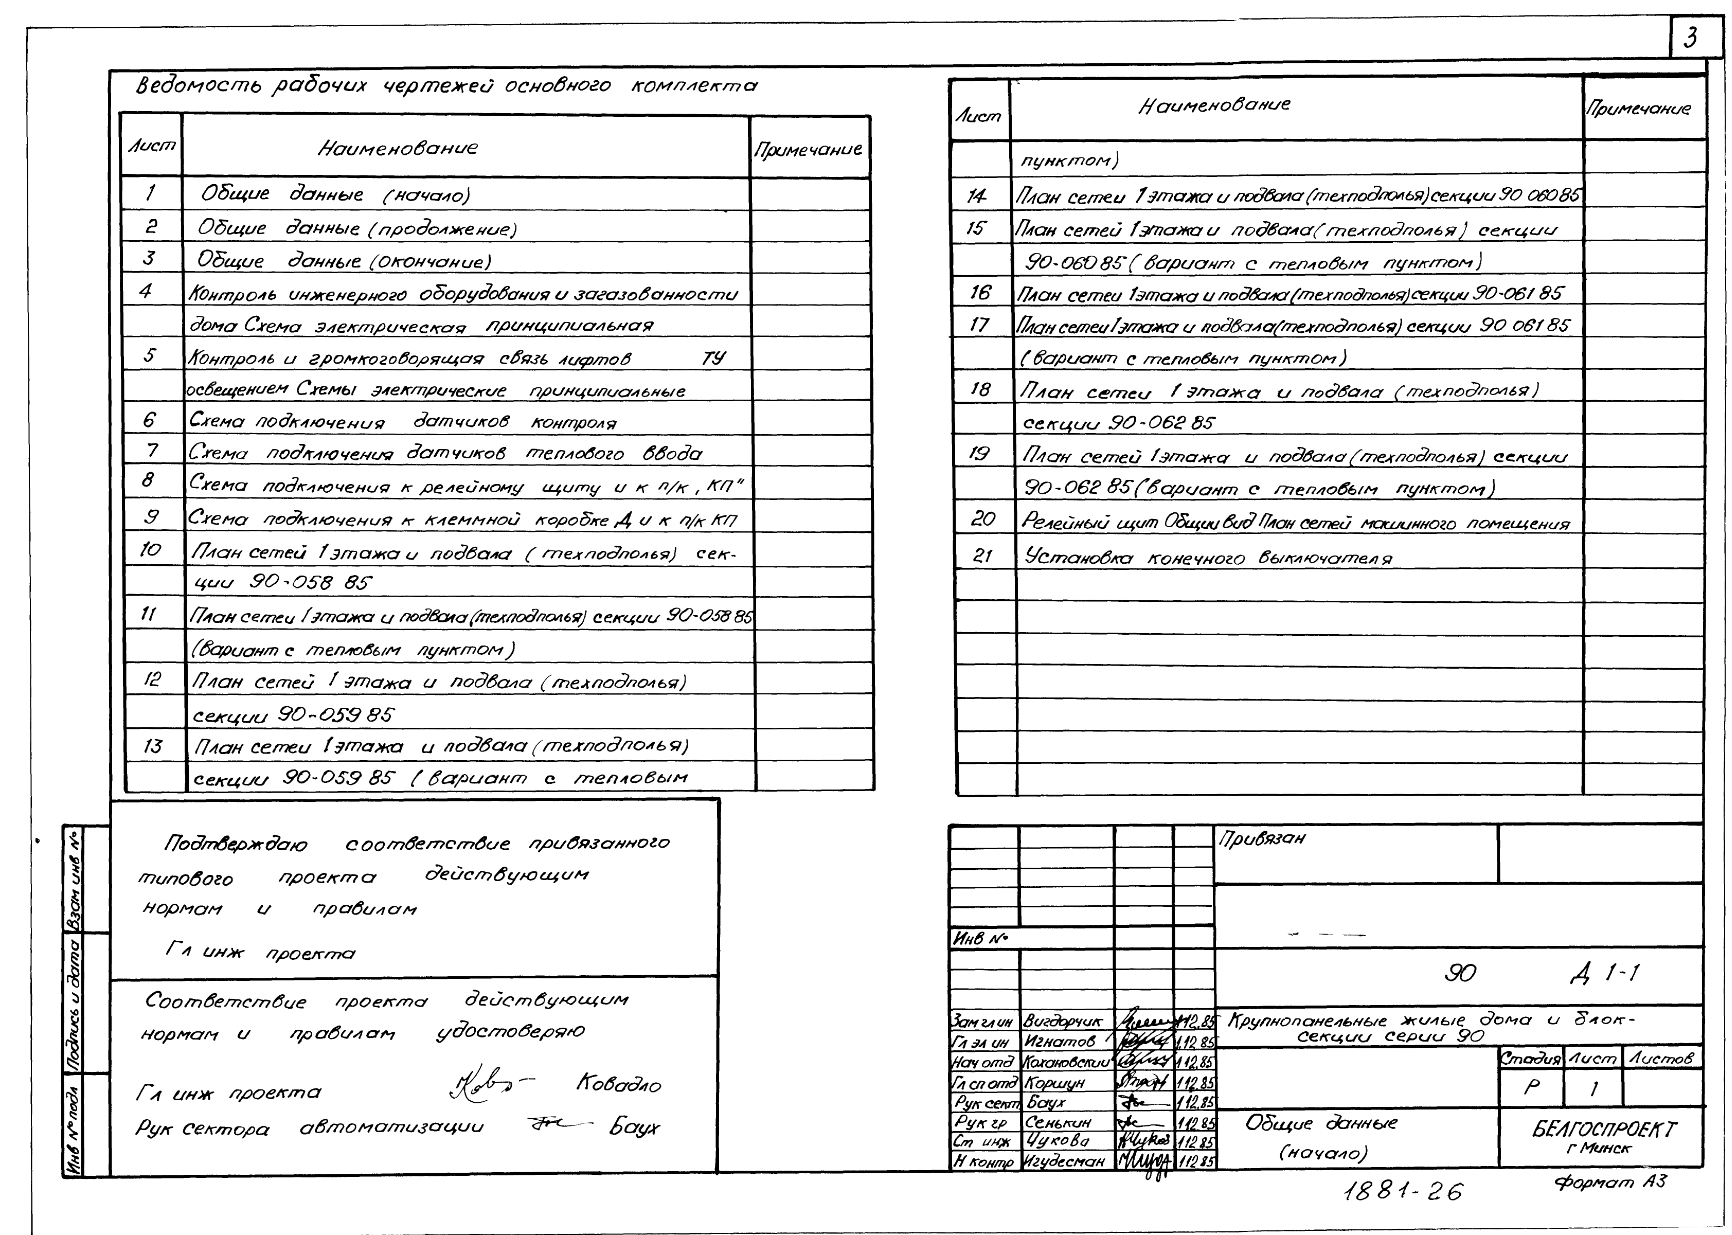 3
Ведомость рабочих чертежей основного комплекта
Лист Наименование Примечание
1 Общие данные (начало)
2 Общие данные (продолжение)
3 Общие данные (окончание)
4 Контроль инженерного оборудования и загазованности
дома Схема электрическая принципиальная
5 Контроль и громкоговорящая связь лифтов ТУ
освещением Схемы электрические принципиальные
6 Схема подключения датчиков контроля
7 Схема подключения датчиков теплового ввода
8 Схема подключения к релейному щиту и к п/к „КП"
9 Схема подключения к клеммной коробке Д и к п/к КП
10 План сетей 1 этажа и подвала (техподполья) сек-
ции 90-058 85
11 План сетеи 1 этажа и подвала (техподполья) секции 90-058 85
(вариант с тепловым пунктом)
12 План сетей 1 этажа и подвала (техподполья)
секции 90-059 85
13 План сетеи 1 этажа и подвала (техподполья)
секции 90-059 85 (вариант с тепловым
Лист Наименование Примечание
пунктом)
14 План сетеи 1 этажа и подвала (техподполья) секции 90 060 85
15 План сетей 1 этажа и подвала (техподполья) секции
90-060 85 (вариант с тепловым пунктом)
16 План сетеи 1 этажа и подвала (техподполья) секции 90-061 85
17 План сетеи 1 этажа и подвала (техподполья) секции 90 061 85
(вариант с тепловым пунктом)
18 План сетеи 1 этажа и подвала (техподполья)
секции 90-062 85
19 План сетей 1 этажа и подвала (техподполья) секции
90-062 85 (вариант с тепловым пунктом)
20 Релейный щит Общии вид План сетей машинного помещения
21 Установка конечного выключателя
Подтверждаю соответствие привязанного
типового проекта действующим
нормам и правилам
Гл инж проекта
Соответствие проекта действующим
нормам и правилам удостоверяю
Гл инж проекта Ковадло
Рук сектора автоматизации Баух
Взам инв №
Подпись и дата
Инв № подл
Привязан
Инв №
90 Д 1-1
Зам гл ин Вигдорчик 1 12.85
Гл эл ин Игнатов 1.12.85
Нач отд Кохановский 1 12.85
Гл сп отд Коршун 1 12.85
Рук сект Баух 1 12.85
Рук гр Сенькин 1 12.85
Ст инж Чукова 1 12.85
Н контр Игудесман 1 12 85
Крупнопанельные жилые дома и блок-
секции серии 90
Стадия Лист Листов
Р 1
Общие данные
(начало)
БЕЛГОСПРОЕКТ
г Минск
1881-26
Формат А3